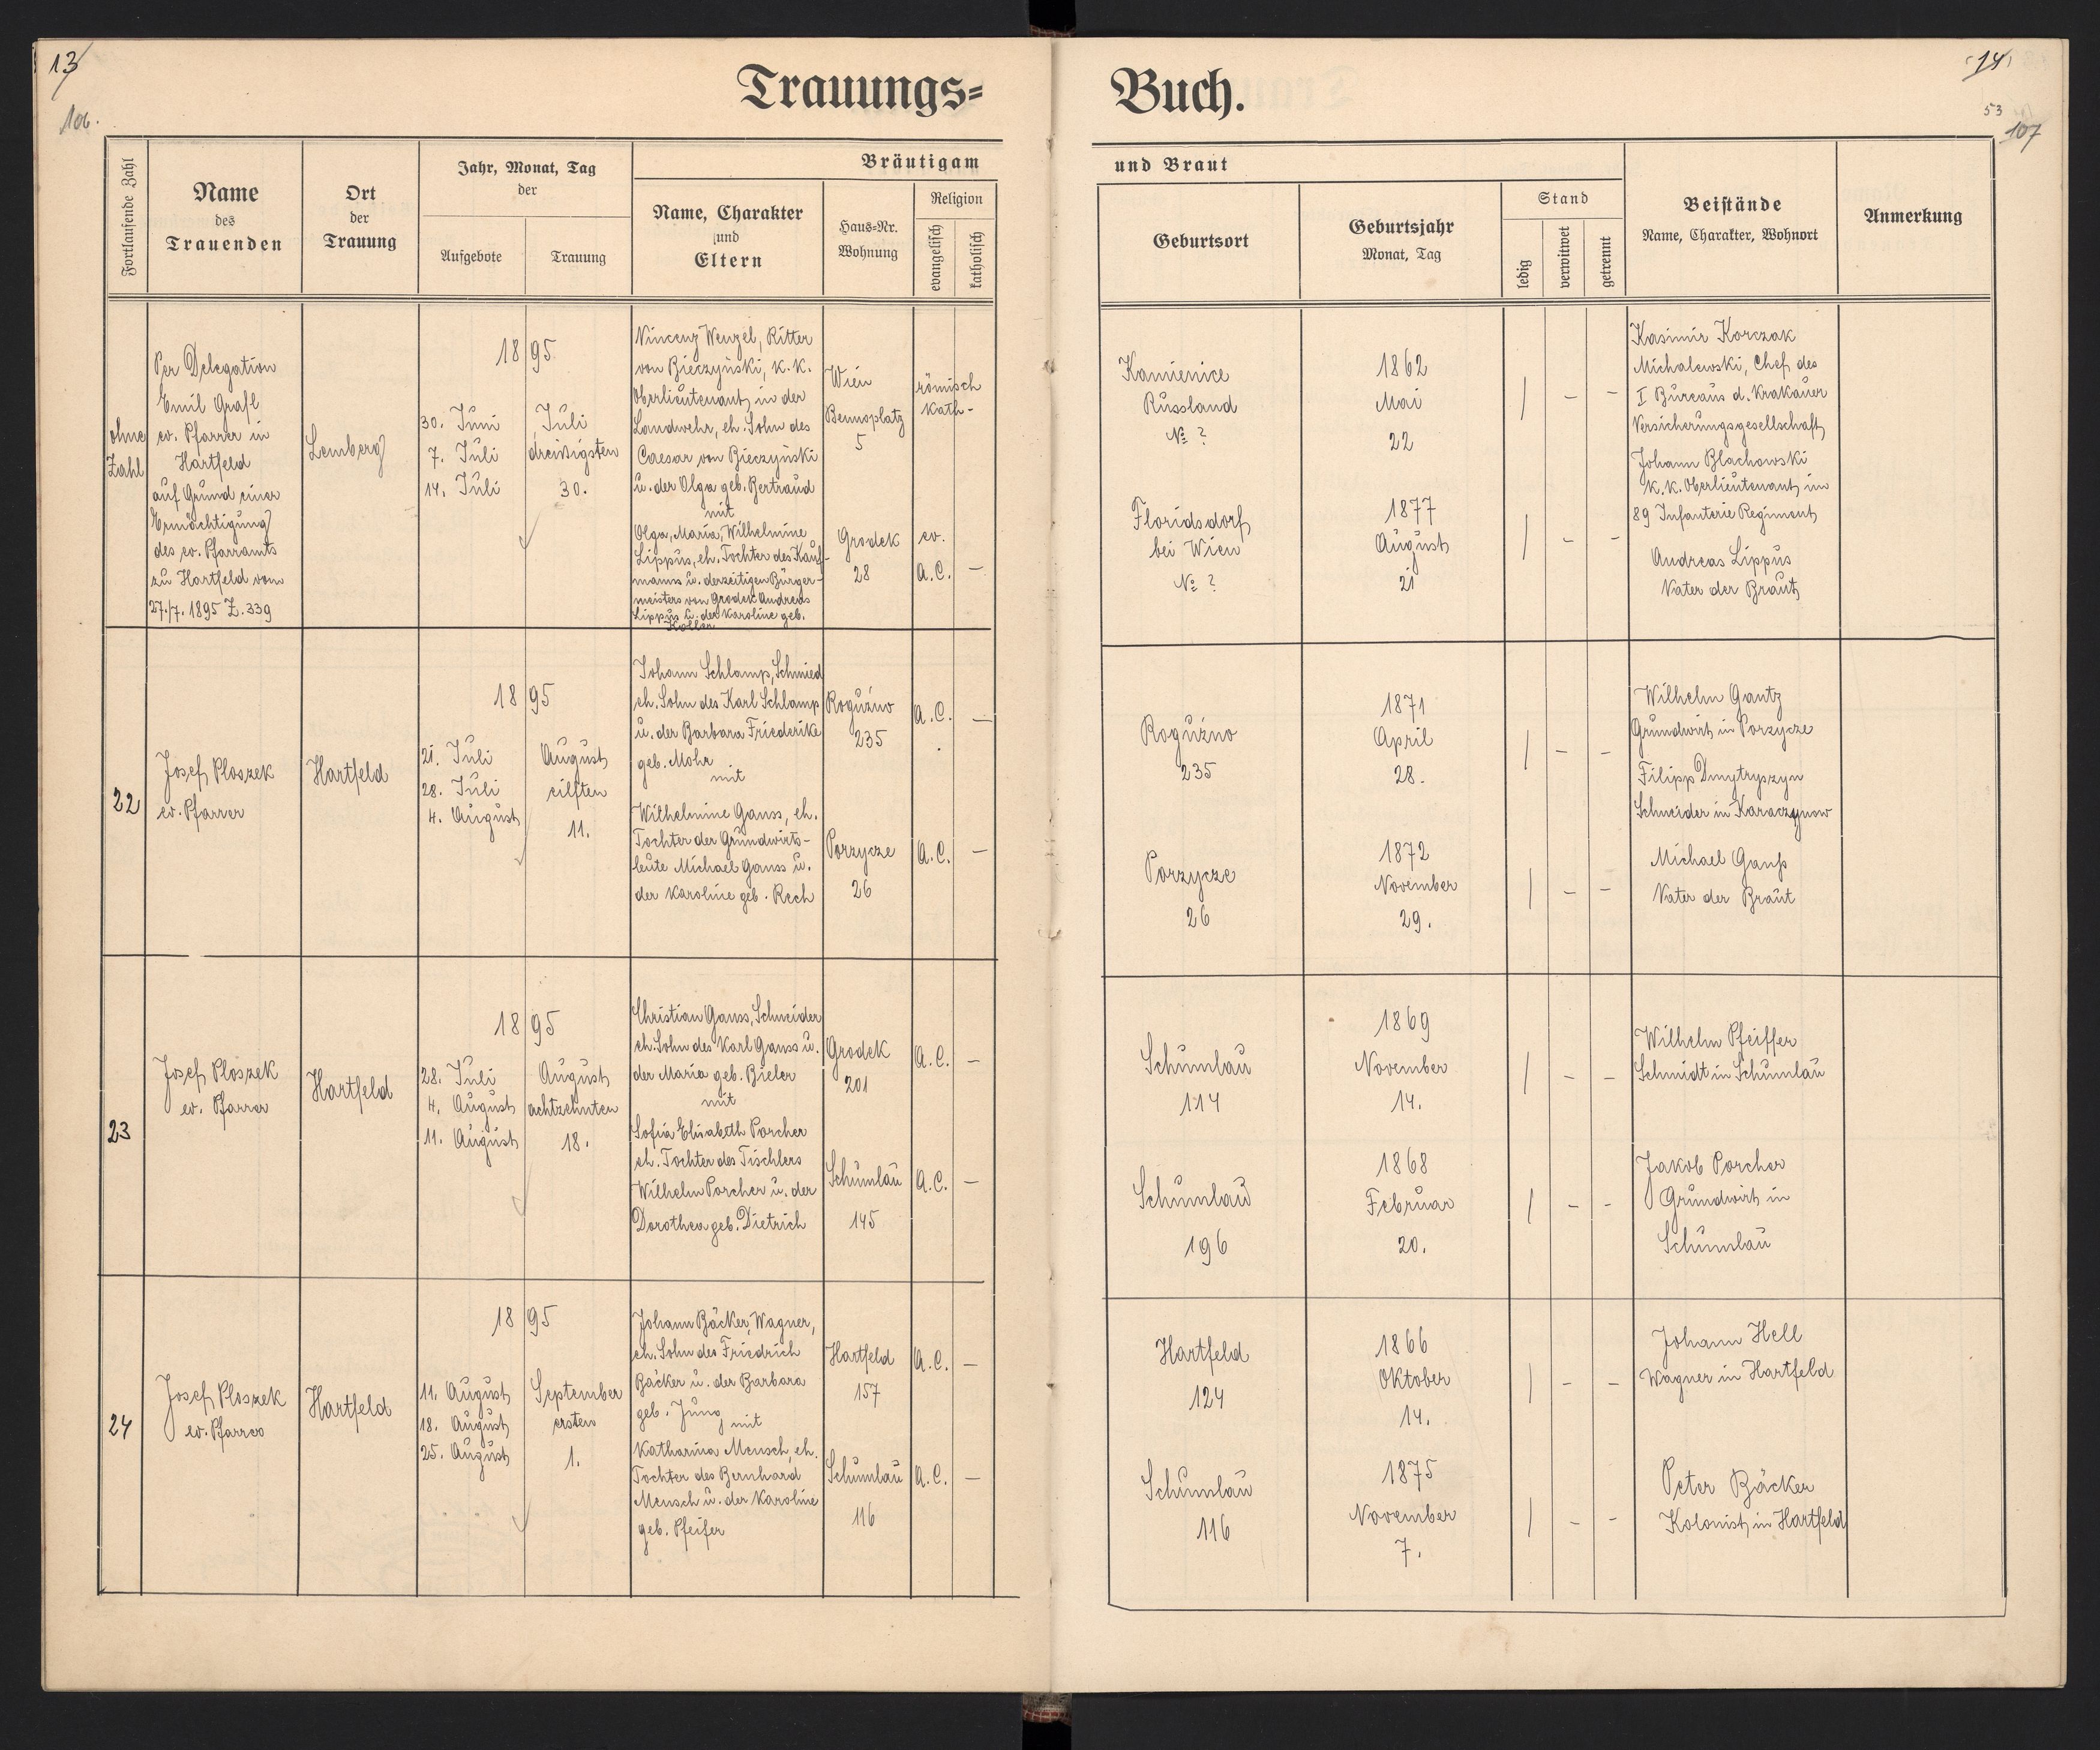 13
106.
Trauungs=
Fortlaufende Zahl
Name
des
Trauenden
Ort
der
Trauung
Jahr, Monat, Tag
der
Aufgebote
Trauung
Bräutigam
Name, Charakter
und
Eltern
Haus=Nr.
Wohnung
Religion
evangelisch
katholisch
ohne
Zahl
Per Delegation
Emil Grafl
ev. Pfarrer in
Hartfeld
auf Grund einer
Ermächtigung
des ev. Pfarramts
zu Hartfeld vom
27./7. 1895 Z. 339
Lemberg
1895
30. Juni
7. Juli
14. Juli
Juli
dreißigsten
30.
Vincenz Wenzel, Ritter
von Bieczyński, k. k.
Oberlieutenant in der
Landwehr, eh. Sohn des
Caesar von Bieczyński
u. der Olga geb. Bertraud
mit
Olga, Maria, Wilhelmine
Lippus, eh. Tochter des Kauf-
manns u. derzeitigen Bürger-
meisters von Grodek Andreas
Lippus u. der Karoline geb.
Koller
Wien
Bennoplatz
5
Grodek
28
römisch
kath-
ev.
A.C. —
22
Josef Ploszek
ev. Pfarrer
Hartfeld
1895
21. Juli
28. Juli
4. August
August
eilften
11.
Johann Schlamp, Schmied
eh. Sohn des Karl Schlamp
u. der Barbara Friederike
geb. Mohr
mit
Wilhelmine Gauss, eh.
Tochter der Grundwirts-
leute Michael Gauss u.
der Karoline geb. Rech
Roguźno
235
Porzycze
26
A.C. —
A.C. —
23
Josef Ploszek
ev. Pfarrer
Hartfeld
1895
28. Juli
4. August
11. August
August
achtzehnten
18.
Christian Gauss, Schneider
eh. Sohn des Karl Gauss u.
der Maria geb. Bieler
mit
Sofia Elisabeth Porcher
eh. Tochter des Tischlers
Wilhelm Porcher u. der
Dorothea geb. Dietrich
Grodek
201
Schumlau
145
A.C. —
A.C. —
24
Josef Ploszek
ev. Pfarrer
Hartfeld
1895
11. August
18. August
25. August
September
ersten
1.
Johann Bäcker, Wagner,
eh. Sohn des Friedrich
Bäcker u. der Barbara
geb. Jung mit
Katharina Mensch, eh.
Tochter des Bernhard
Mensch u. der Karoline
geb. Pfeifer
Hartfeld
157
Schumlau
116
A.C. —
A.C. —
14
53
107
Buch.
und Braut
Geburtsort
Geburtsjahr
Monat, Tag
Stand
ledig
verwitwet
getrennt
Beistände
Name, Charakter, Wohnort
Anmerkung
Kamienice
Russland
№ ?
Floridsdorf
bei Wien
№ ?
1862
Mai
22
1877
August
21
/ – –
/ – –
Kasimir Korczak
Michalewski, Chef des
I Bureaus d. Krakauer
Versicherungsgesellschaft
Johann Blachowski
k. k. Oberlieutenant im
89 Infanterie Regiment
Andreas Lippus
Vater der Braut
Roguźno
235
Porzycze
26
1871
April
28.
1872
November
29.
/ – –
/ – –
Wilhelm Gantz
Grundwirt in Porzycze
Filipp Dmytryszyn
Schneider in Karaczynow
Michael Gauß
Vater der Braut
Schumlau
114
Schumlau
196
1869
November
14.
1868
Februar
20.
/ – –
/ – –
Wilhelm Pfeiffer
Schmidt in Schumlau
Jakob Porcher
Grundwirt in
Schumlau
Hartfeld
124
Schumlau
116
1866
Oktober
14.
1875
November
7.
/ – –
/ – –
Johann Hell
Wagner in Hartfeld
Peter Bäcker
Kolonist in Hartfeld